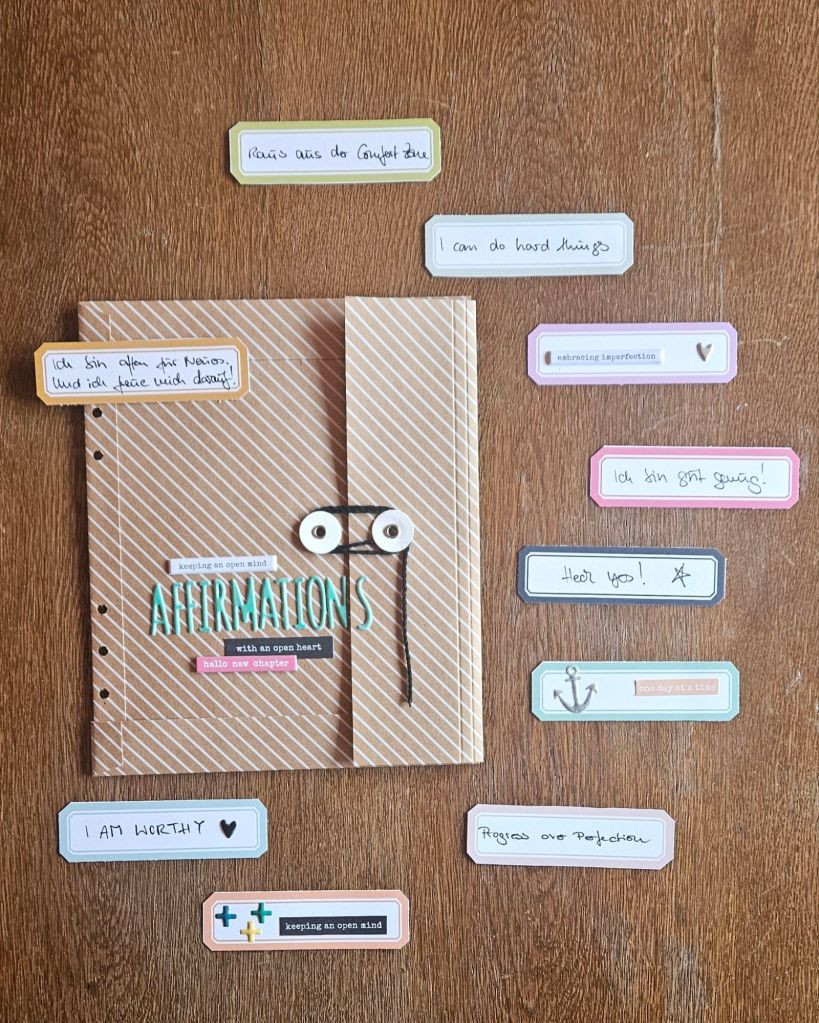 Raus aus der Comfort Zone
I can do hard things
embracing imperfection
Ich bin offen für Neues.
Und ich freue mich darauf!
Ich bin gut genug!
keeping an open mind
AFFIRMATIONS
with an open heart
hello new chapter
Heck yes!
one day at a time
I AM WORTHY
Progress over Perfection
keeping an open mind